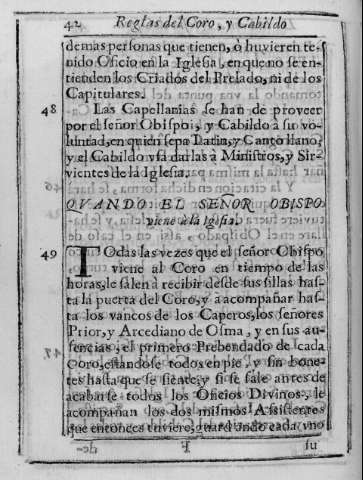 42 Reglas del Coro, y Cabildo
demas personas que tienen, ò huvieren te-
nido Oficio en la Iglesia, en que no se en-
tienden los Criados del Prelado, ni de los
Capitulares.
48 Las Capellanias se han de proveer
por el señor Obispo, y Cabildo à su vo-
luntad, en quien sepa Latin, y Canto llano,
y el Cabildo vsa darlas à Ministros, y Sir-
vientes de la Iglesia.
QVANDO EL SEÑOR OBISPO
viene à la Iglesia.
49 TOdas las vezes que el señor Obispo
viene al Coro en tiempo de las
horas, le salen à recibir desde sus sillas has-
ta la puerta del Coro, y à acompañar has-
ta los vancos de los Caperos, los señores
Prior, y Arcediano de Osma, y en sus au-
sencias, el primero Prebendado de cada
Coro, estandose todos en pie, y sin bone-
tes hasta que se siente, y si se sale antes de
acabarse todos los Oficios Divinos, le
acompañan los dos mismos Assistentes
que entonces tuviere, guardando cada vno
F su